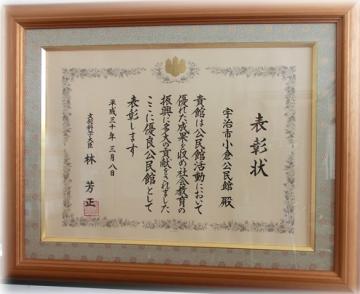 表彰状
宇治市小倉公民館 殿
貴館は公民館活動において
優れた成果を収め社会教育の
振興に多大の貢献をされました
ここに優良公民館として
表彰します
平成三十年 三月八日
文部科学大臣 林 芳正